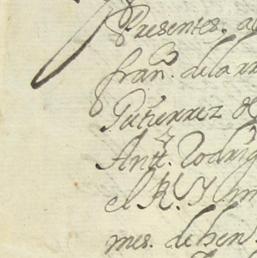 Presentes. a
fran.co de la rr
Gutierrez de
Antt.o Rodrig
el R.l Y
mes. de hen.